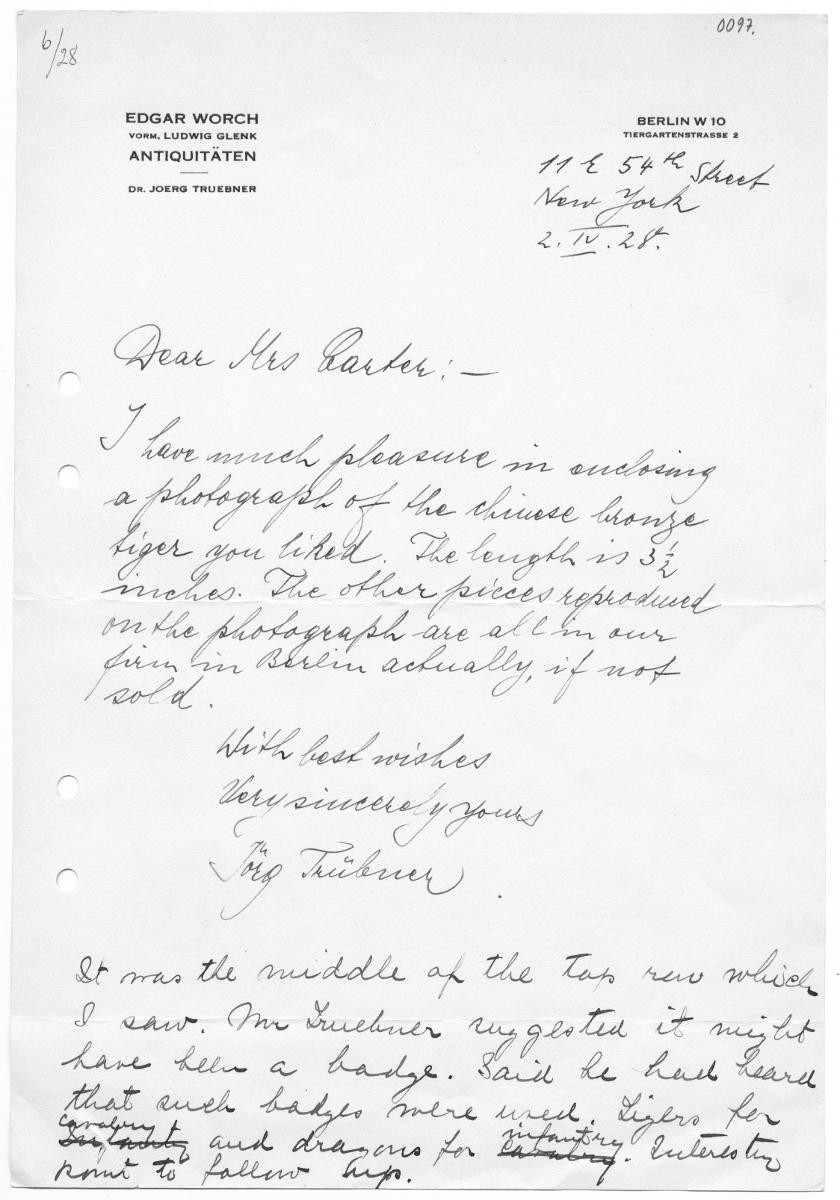 6/28
0097.
EDGAR WORCH
VORM. LUDWIG GLENK
ANTIQUITÄTEN
DR. JOERG TRUEBNER
BERLIN W 10
TIERGARTENSTRASSE 2
11 E 54th Street
New York
2. IV. 28.
Dear Mrs Carter:—
I have much pleasure in enclosing
a photograph of the chinese bronze
tiger you liked. The length is 3 1/2
inches. The other pieces reproduced
on the photograph are all in our
firm in Berlin actually, if not
sold.
With best wishes
Very sincerely yours
Jörg Trübner.
It was the middle of the top row which
I saw. Mr Truebner suggested it might
have been a badge. Said he had heard
that such badges were used. Tigers for
cavalry infantry
Infantry and dragons for cavalry. Interesting
point to follow up.